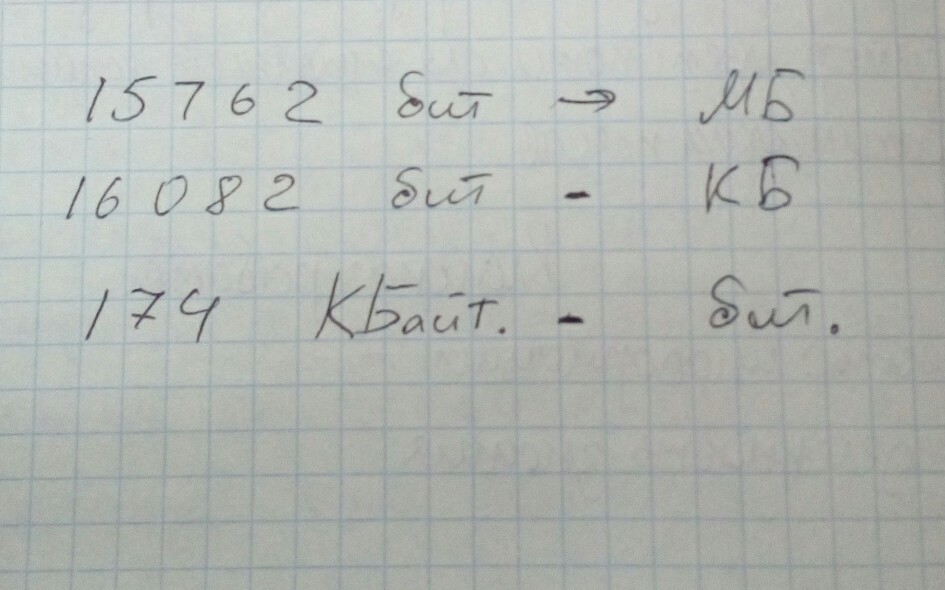 15762 бит → МБ
16082 бит - КБ
174 КБайт. - бит.